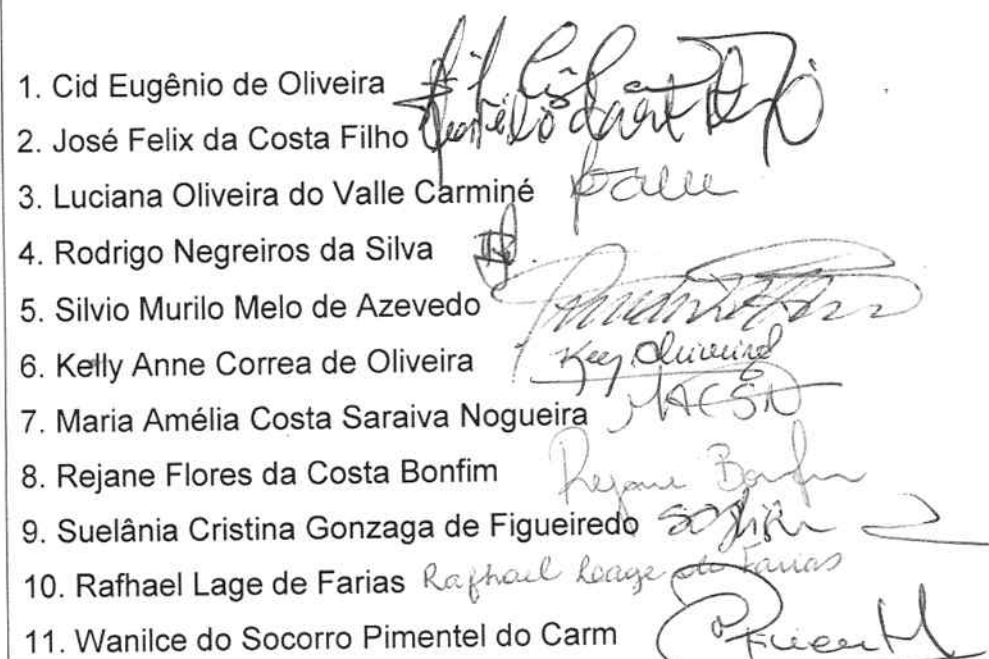 1. Cid Eugênio de Oliveira
2. José Felix da Costa Filho
3. Luciana Oliveira do Valle Carminé
4. Rodrigo Negreiros da Silva
5. Silvio Murilo Melo de Azevedo
6. Kelly Anne Correa de Oliveira
7. Maria Amélia Costa Saraiva Nogueira MACSN
8. Rejane Flores da Costa Bonfim Rejane Bonfim
9. Suelânia Cristina Gonzaga de Figueiredo
10. Rafhael Lage de Farias Rafhael Lage de Farias
11. Wanilce do Socorro Pimentel do Carm